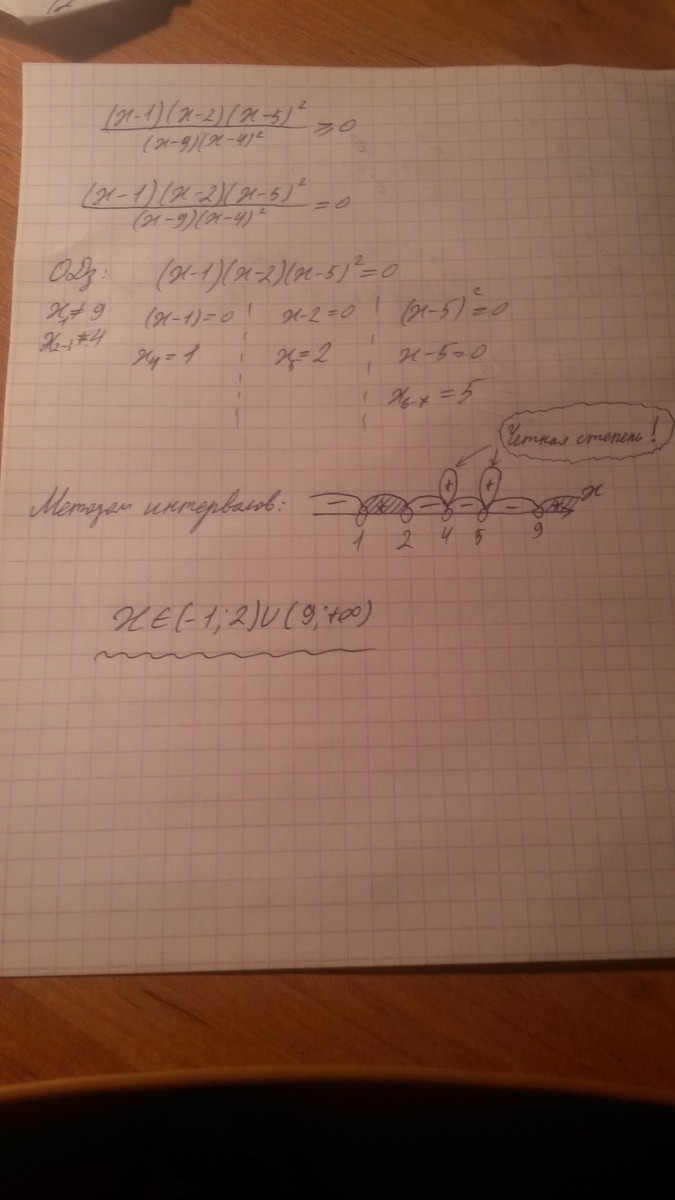 (x-1)(x-2)(x-5)²
(x-9)(x-4)² ⩾0
(x-1)(x-2)(x-5)²
(x-9)(x-4)² =0
ОДЗ: (x-1)(x-2)(x-5)²=0
x₁≠9 (x-1)=0 x-2=0 (x-5)²=0
x₂₋₃≠4 x₄=1 x₅=2 x-5=0
x₆₋₇=5
Четная степень!
Методом интервалов: - + - + - + - + x
1 2 4 5 9
x∈(-1;2)∪(9;+∞)